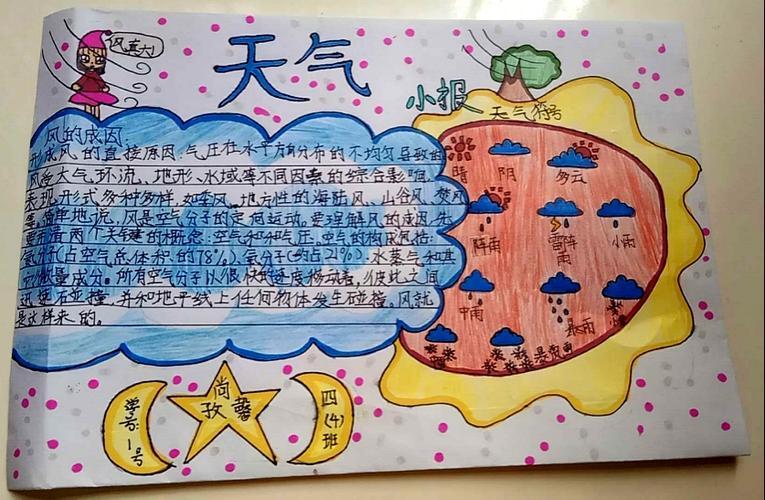 风真大!
天气
小报
天气符号
风的成因:
形成风的直接原因:气压在水平方向分布的不均匀导致的
风受大气环流、地形、水域等不同因素的综合影响,
表现形式多种多样,如季风、地方性的海陆风、山谷风、焚风
等。简单地说,风是空气分子的定向运动。要理解风的成因,先
要弄清两个关键的概念:空气和气压。空气的构成包括:
氮分子(占空气总体积的78%)、氧分子(约占21%)、水蒸气和其
它微量成分。所有空气分子以很快的速度移动着,彼此之间
迅速碰撞,并和地平线上任何物体发生碰撞,风就
是这样来的。
晴 阴 多云
阵雨 雷阵雨 小雨
中雨
暴雨
学号:1号
尚孜馨
四(4)班